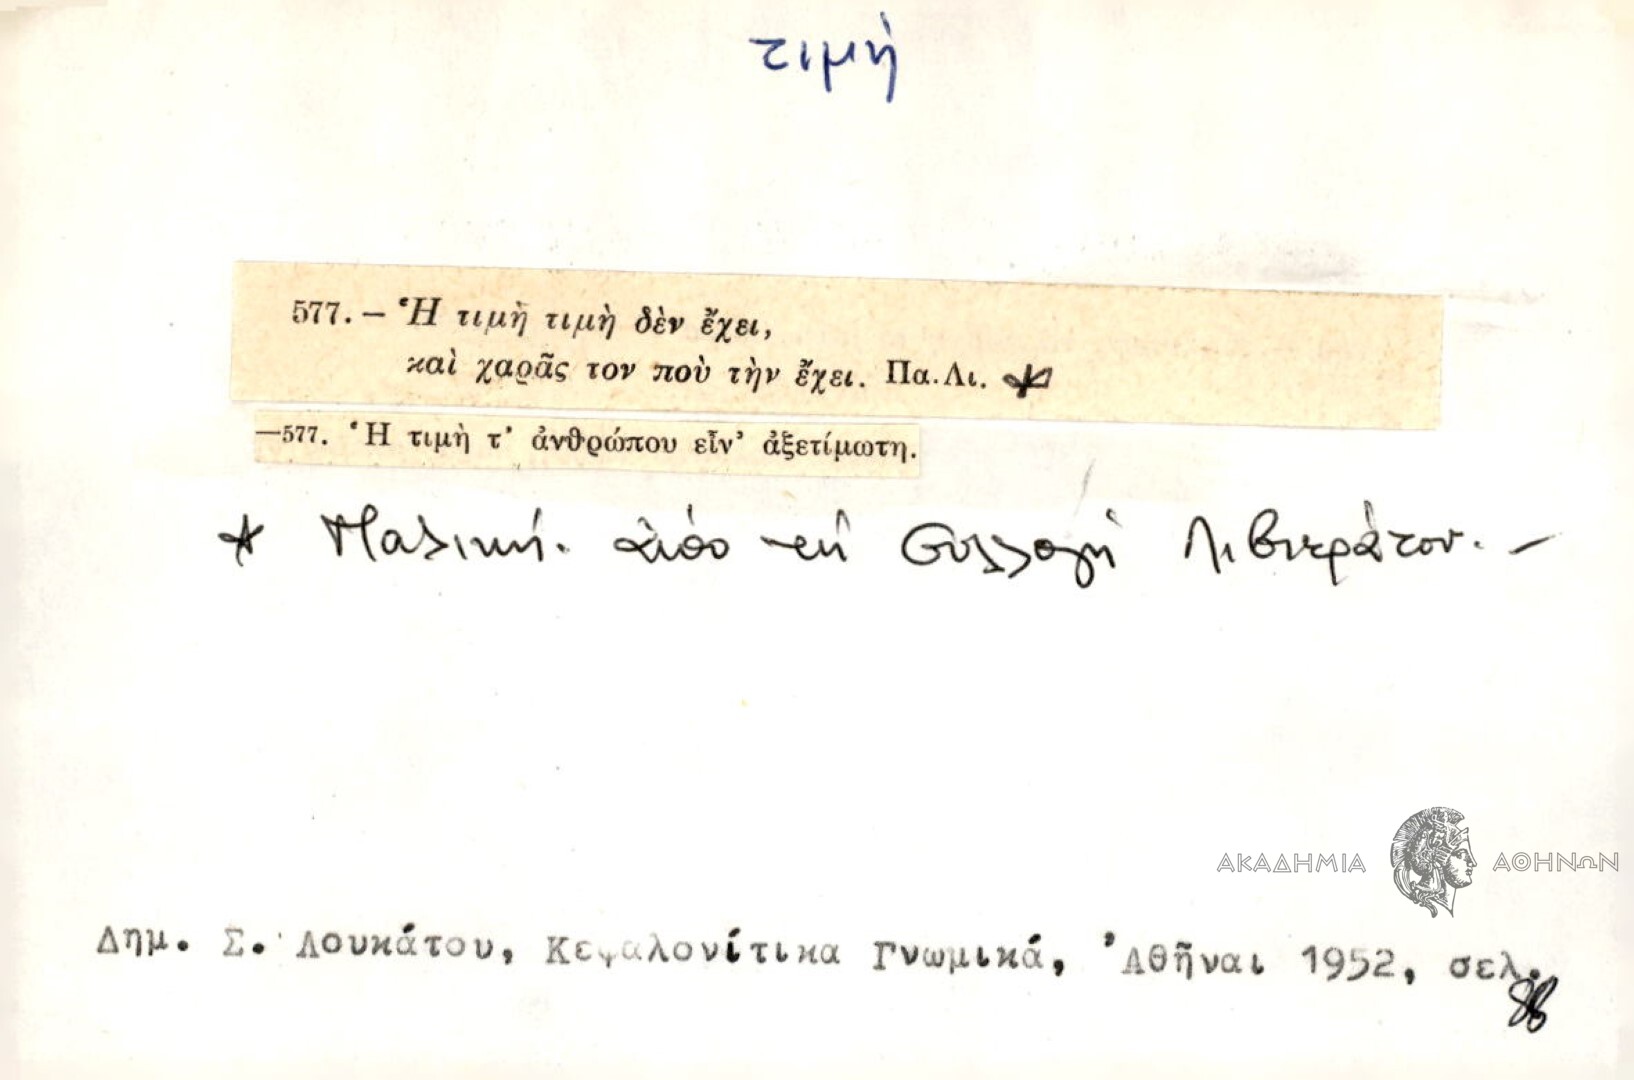 τιμή
577. – Ἡ τιμὴ τιμὴ δὲν ἔχει,
καὶ χαρᾶς τον ποὺ τὴν ἔχει. Πα.Λι. *
—577. Ἡ τιμὴ τ' ἀνθρώπου εἶν' ἀξετίμωτη.
* Παλικὴ. ἀπὸ τὴ Συλλογὴ Λιβιεράτου. –
ΑΚΑΔΗΜΙΑ ΑΘΗΝΩΝ
Δημ. Σ. Λουκάτου, Κεφαλονίτικα Γνωμικά, Ἀθῆναι 1952, σελ.